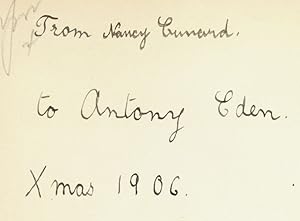 From Nancy Cunard.
to Antony Eden.
Xmas 1906.